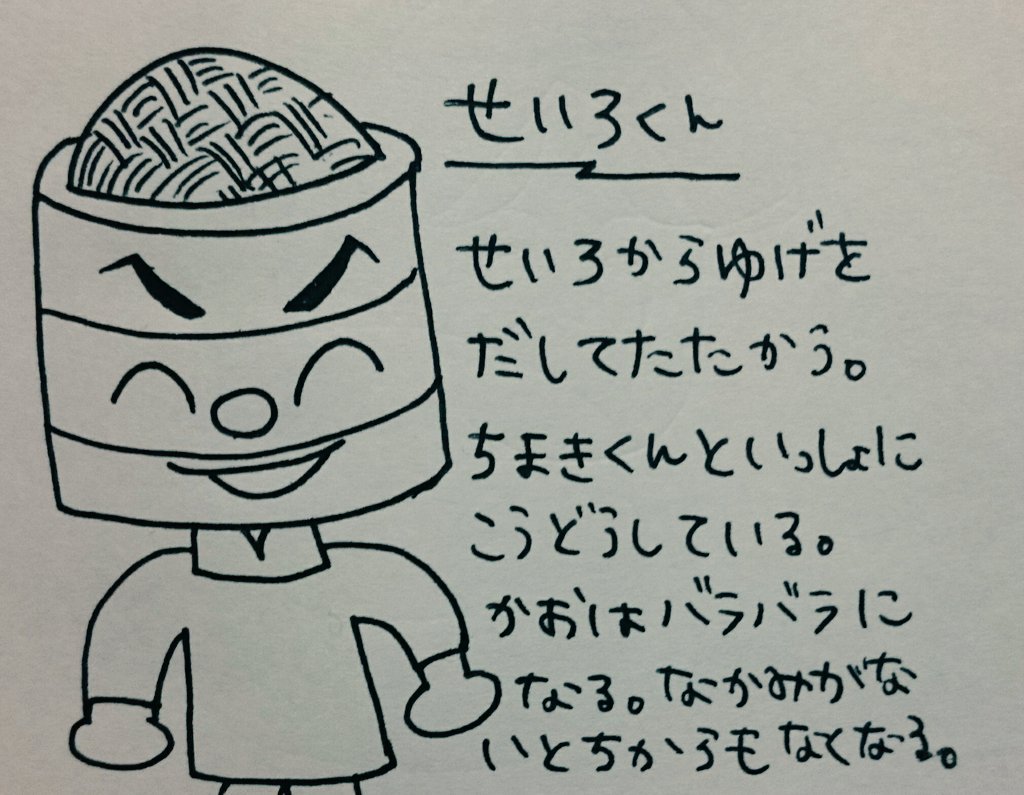 せいろくん
せいろからゆげを
だしてたたかう。
ちまきくんといっしょに
こうどうしている。
かおはバラバラに
なる。なかみがな
いとちからもなくなる。